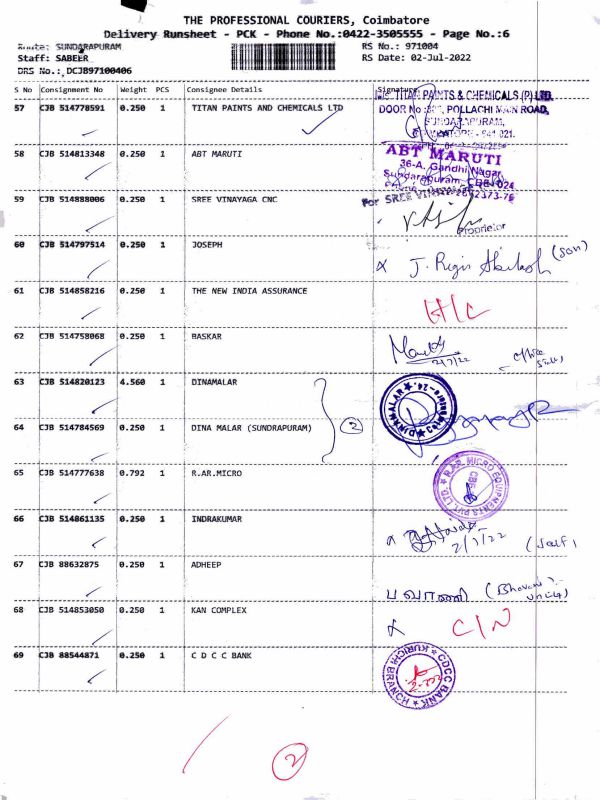 THE PROFESSIONAL COURIERS, Coimbatore
Delivery Runsheet - PCK - Phone No.:0422-3505555 - Page No.:6
Route: SUNDARAPURAM RS No.: 971004
Staff: SABEER RS Date: 02-Jul-2022
DRS No.: DCJB97100406
S No Consignment No Weight PCS Consignee Details Signature
57 CJB 514778591 0.250 1 TITAN PAINTS AND CHEMICALS LTD
TITAN PAINTS & CHEMICALS (P) LTD.
DOOR No POLLACHI MAIN ROAD,
SUNDARAPURAM,
58 CJB 514813348 0.250 1 ABT MARUTI
ABT MARUTI
36-A, Gandhi Nagar
Sundarapuram, CBE-024
59 CJB 514888006 0.250 1 SREE VINAYAGA CNC
For SREE
Proprietor
60 CJB 514797514 0.250 1 JOSEPH
J. Regis (Son)
61 CJB 514858216 0.250 1 THE NEW INDIA ASSURANCE
62 CJB 514758068 0.250 1 BASKAR
2/7/22 office
63 CJB 514820123 4.560 1 DINAMALAR
DINAMALAR
64 CJB 514784569 0.250 1 DINA MALAR (SUNDRAPURAM) 2
65 CJB 514777638 0.792 1 R.AR.MICRO
R.AR. MICRO EQUIPMENTS PVT. LTD.
CBE
66 CJB 514861135 0.250 1 INDRAKUMAR
2/7/22 (Self)
67 CJB 88632875 0.250 1 ADHEEP
பவானி (Bhavani
68 CJB 514853050 0.250 1 KAN COMPLEX
C/N
69 CJB 88544871 0.250 1 C D C C BANK
CDCC BANK
KURICHI BRANCH
2